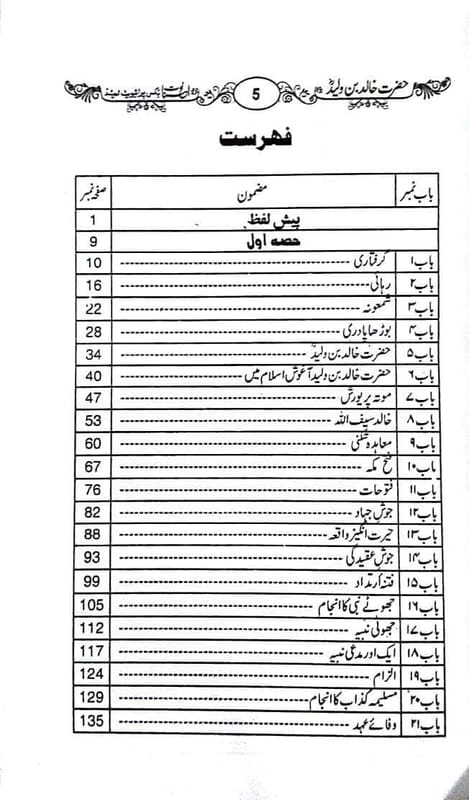 حضرت خالد بن ولیدؓ 5 بکس پرائیویٹ لمیٹڈ
فہرست
باب نمبر مضمون صفحہ نمبر
پیش لفظ 1
حصہ اول 9
باب ۱ گرفتاری 10
باب ۲ رہائی 16
باب ۳ شمعونہ 22
باب ۴ بوڑھا پادری 28
باب ۵ حضرت خالد بن ولیدؓ 34
باب ۶ حضرت خالد بن ولیدؓ آغوش اسلام میں 40
باب ۷ موتہ پر یورش 47
باب ۸ خالد سیف اللہ 53
باب ۹ معاہدہ شکنی 60
باب ۱۰ فتح مکہ 67
باب ۱۱ فتوحات 76
باب ۱۲ جوش جہاد 82
باب ۱۳ حیرت انگیز واقعہ 88
باب ۱۴ جوش عقیدگی 93
باب ۱۵ فتنہ ارتداد 99
باب ۱۶ جھوٹے نبی کا انجام 105
باب ۱۷ جھوٹی نبیہ 112
باب ۱۸ ایک اور مدعی نبیہ 117
باب ۱۹ الزام 124
باب ۲۰ مسلیمہ کذاب کا انجام 129
باب ۲۱ وفائے عہد 135